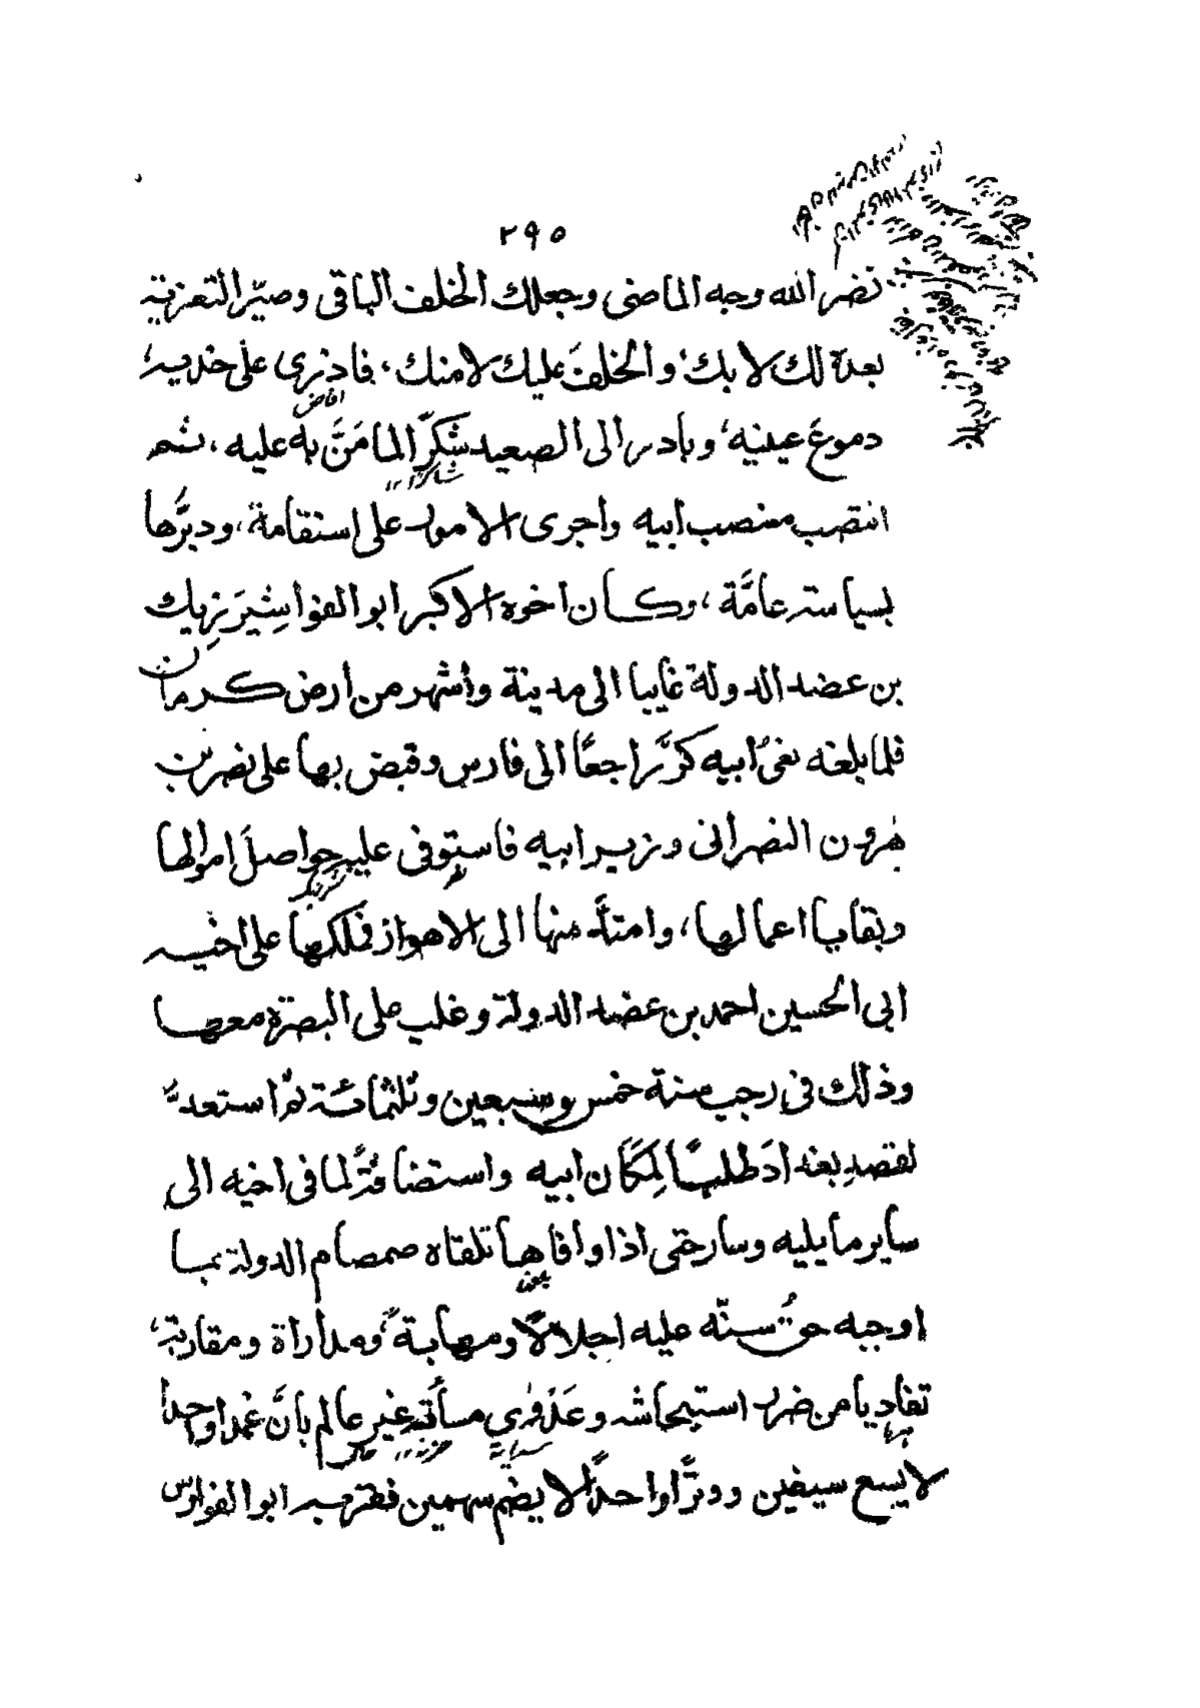 ٢٩٥
نضر الله وجه الماضى وجعلك الخلف الباقى وصيّر التعزية
بعدة لك لا بك، والخلف عليك لا منك، فاذرى على خديه
افاض
دموعَ عينيه، وبادر الى الصعيد شكرًا لما مَنَّ به عليه، ثم
شاكرا
انتصب منصب ابيه واجرى الامور على استقامة، ودبَّرها
بسياسة عامَّة، وكان اخوه الاكبر ابو الفوارس شِيرَزِيك
بن عضد الدولة غايبا الى مدينة وأشهر من ارض كرمان
فلما بلغه نعىُ ابيه كرَّ راجعًا الى فارس وقبض بها على نصر بن
هرون النصرانى وزير ابيه فاستوفى عليه حواصلَ اموالها
وبقايا اعمالها، وامتدَّ منها الى الاهواز فملكها على اخيه
ابى الحسين احمد بن عضد الدولة وغلب على البصرة معها
وذلك فى رجب سنة خمس وسبعين وثلثمائة ثمّ استعدَّ
لقصدِ بغدادَ طلبًا لِمَكَان ابيه واستضافةً لما فى اخيه الى
ساير ما يليه وسار حتى اذا وافاها تلقاه صمصام الدولة بما
اوجبه حقُّ سنّه عليه اجلالًا ومهابةً، ومداراة ومقاربة،
تفاديا من ضرر استيحاشه وعَدْوَى مسأته غير عالم بأنَّ غمدا واحدا
لا يسع سيفين ووترًا واحدًا لا يضم سهمين فقرّبه ابو الفوارس